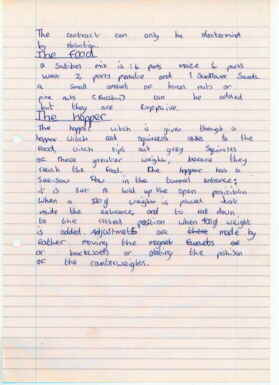 The contract can only be determind
by
The food.
a suitibel mix is :6 parts maize 6 parts
wheat 2 parts peanuts and 1 Sunflower Seeds
a small amount of hazel nuts or
pine nuts can be added
but they are Expensive.
The Hopper
The hopper which is given though a
hopper which red squirrels use to the
food, which tips out grey Squirrels
of there greater weight, before they
reach the food. The hopper has a
See-Saw Floor in the tunnel entrance;
it is set to hold up the open position
When a weight is placed just
inside the entrance, and to fall down
to the closed position when 400g weight
is added. Adjustments are made by
Either moving the magnet forwards
or backwards or altering the position
of the counterweights.